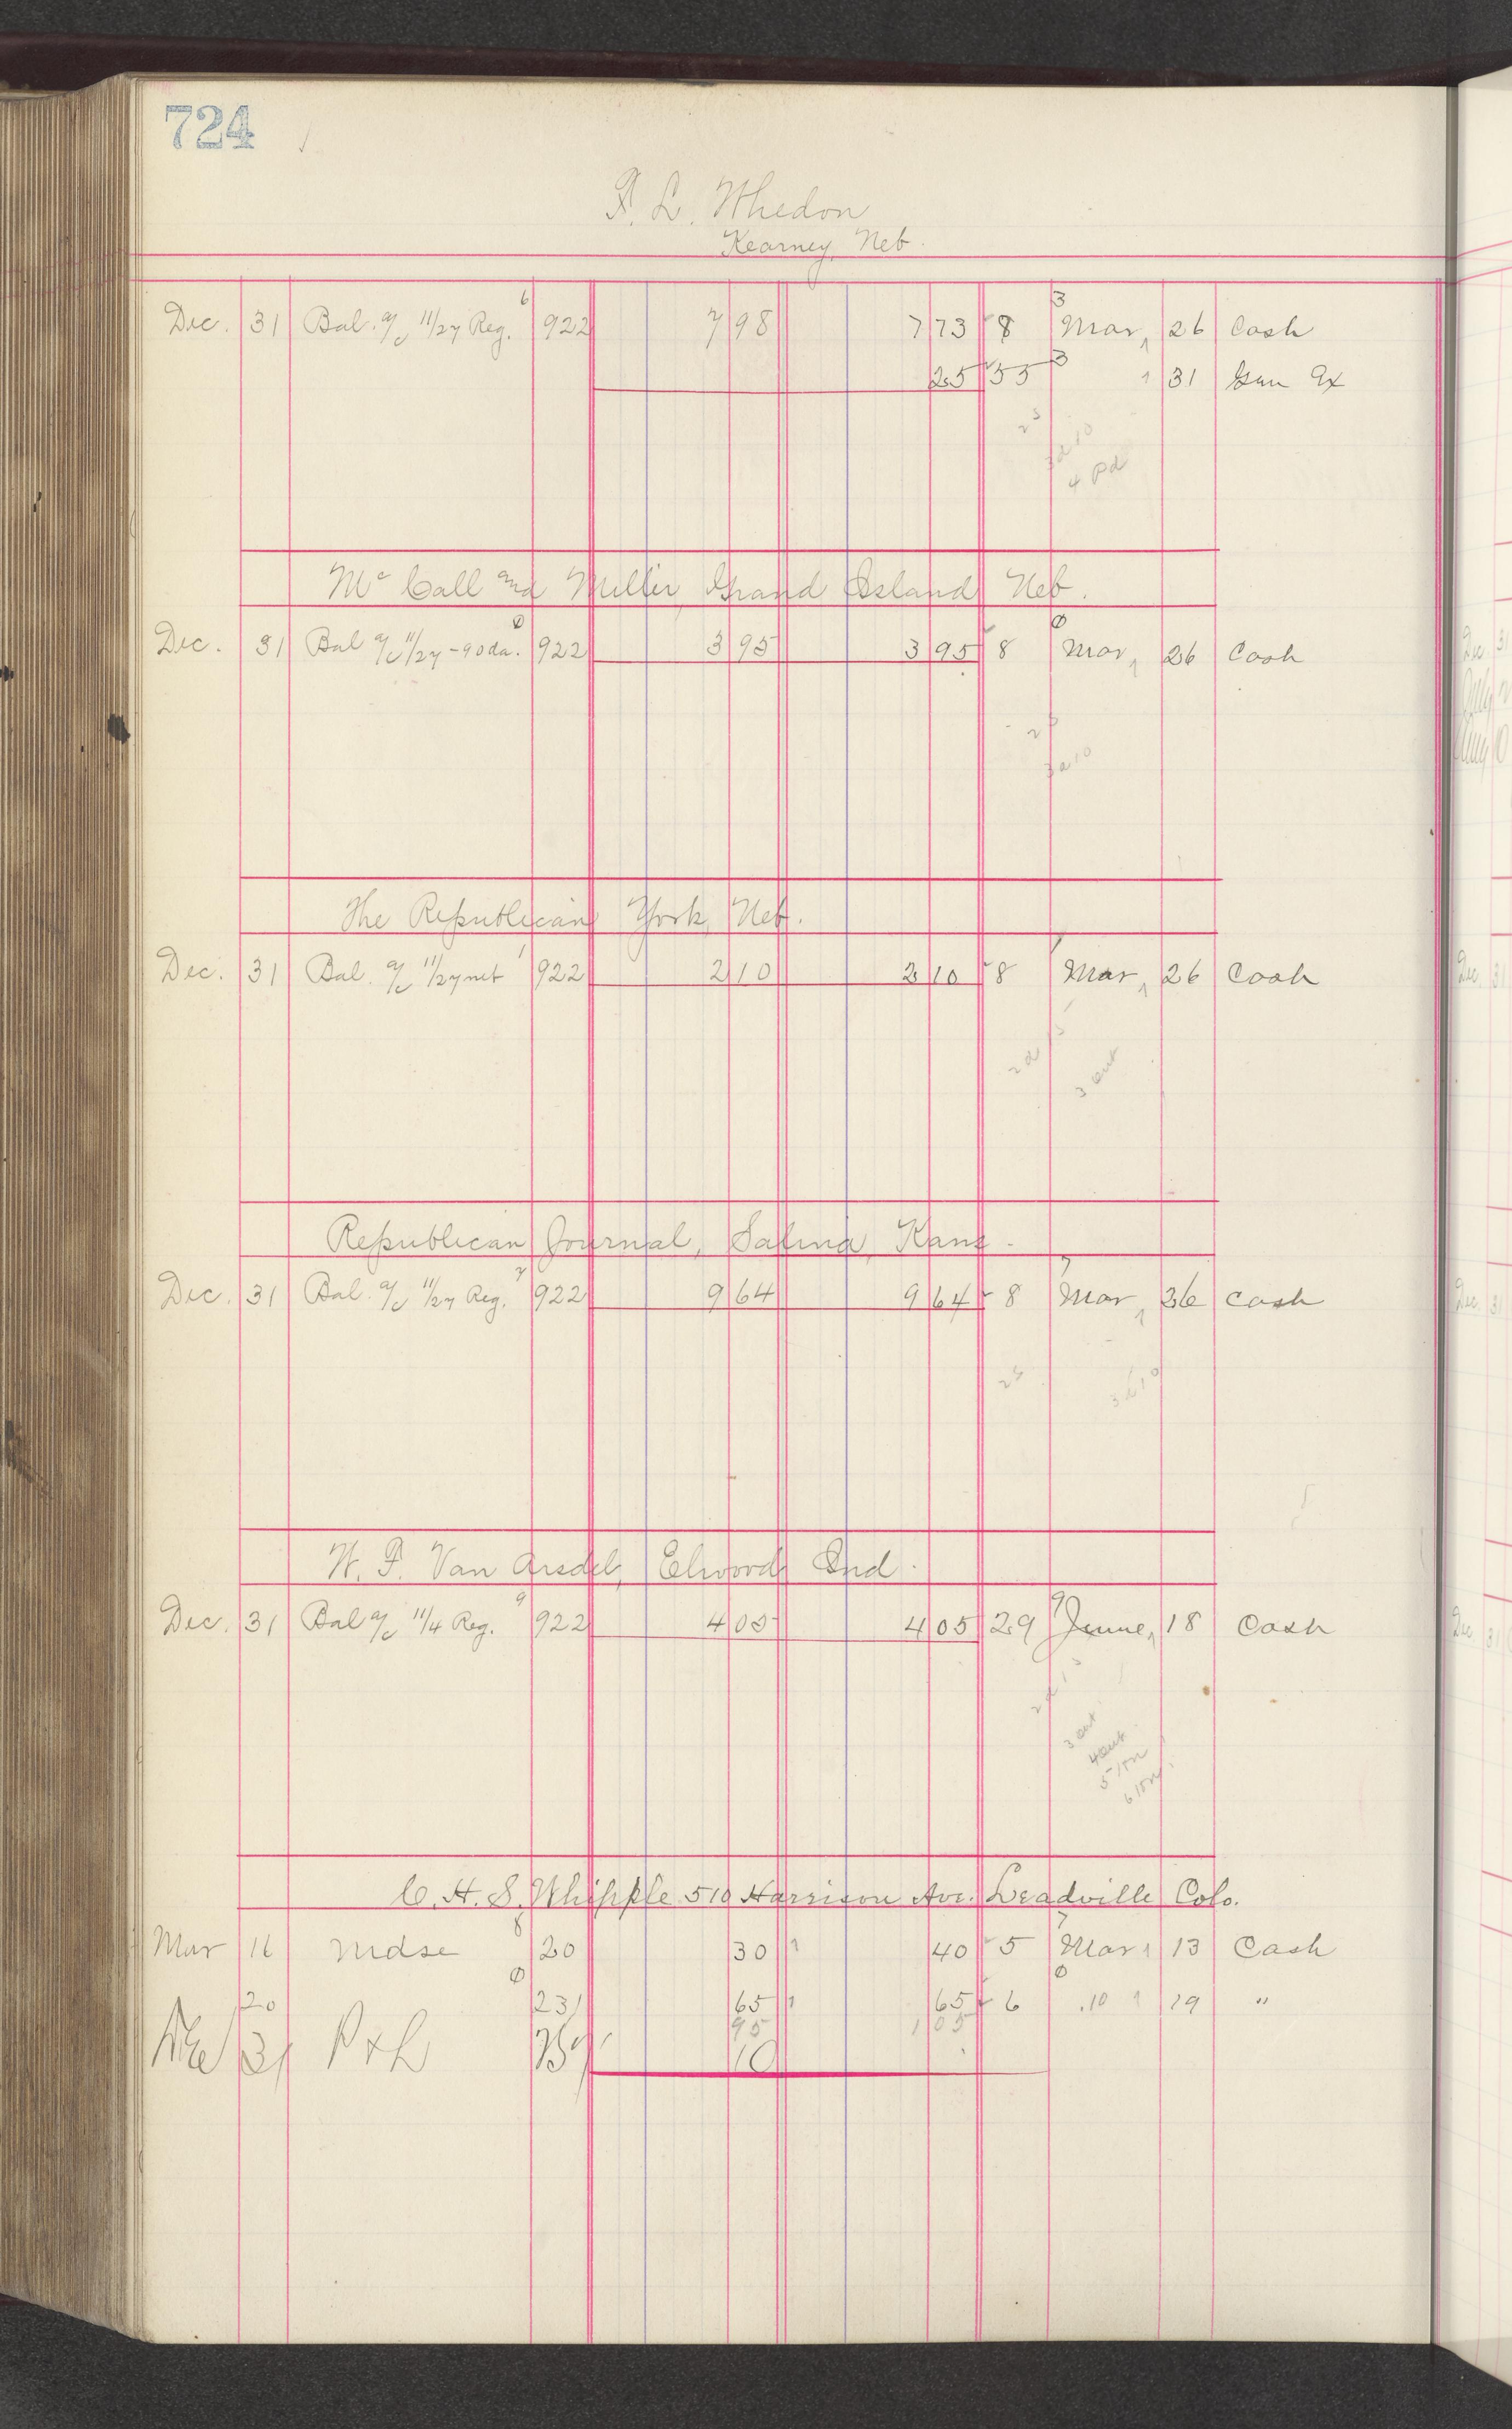 724
F. L. Whedon
Kearney, Neb.
Dec. 31 Bal. a/c 11/27 Reg. 6 922 7 98 7 73 8 3 Mar, 26 Cash
25 53 3 " 31 Gen Ex
4 Pd
Mc Call and Miller, Grand Island, Neb.
Dec. 31 Bal a/c 11/27 - 90 da. 0 922 3 95 3 95 8 0 Mar, 26 Cash
The Republican, York, Neb.
Dec. 31 Bal. a/c 11/27 net 1 922 2 10 2 10 8 1 Mar, 26 Cash
Republican Journal, Salina, Kans.
Dec. 31 Bal. a/c 11/27 Reg. 7 922 9 64 9 64 8 7 Mar, 26 Cash
W. F. Van Arsdel, Elwood, Ind.
Dec. 31 Bal a/c 11/4 Reg. 9 922 4 05 4 05 29 9 June, 18 Cash
C. H. S. Whipple 510 Harrison Ave. Leadville Colo.
Mar 16 Mdse 8 20 30 40 5 7 Mar 13 Cash
20 0 23 65 65 6 0 19 "
95 1 05
31 P & L 10